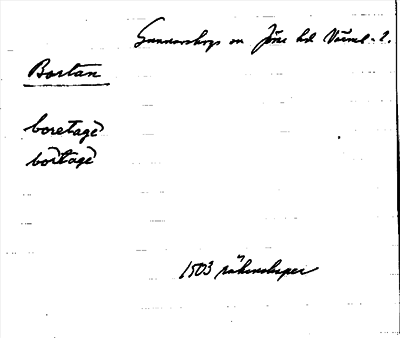 Gunnarskogs sn Jösse hd Värml.
Bortan
boretage
bortage
1503 räkenskaper